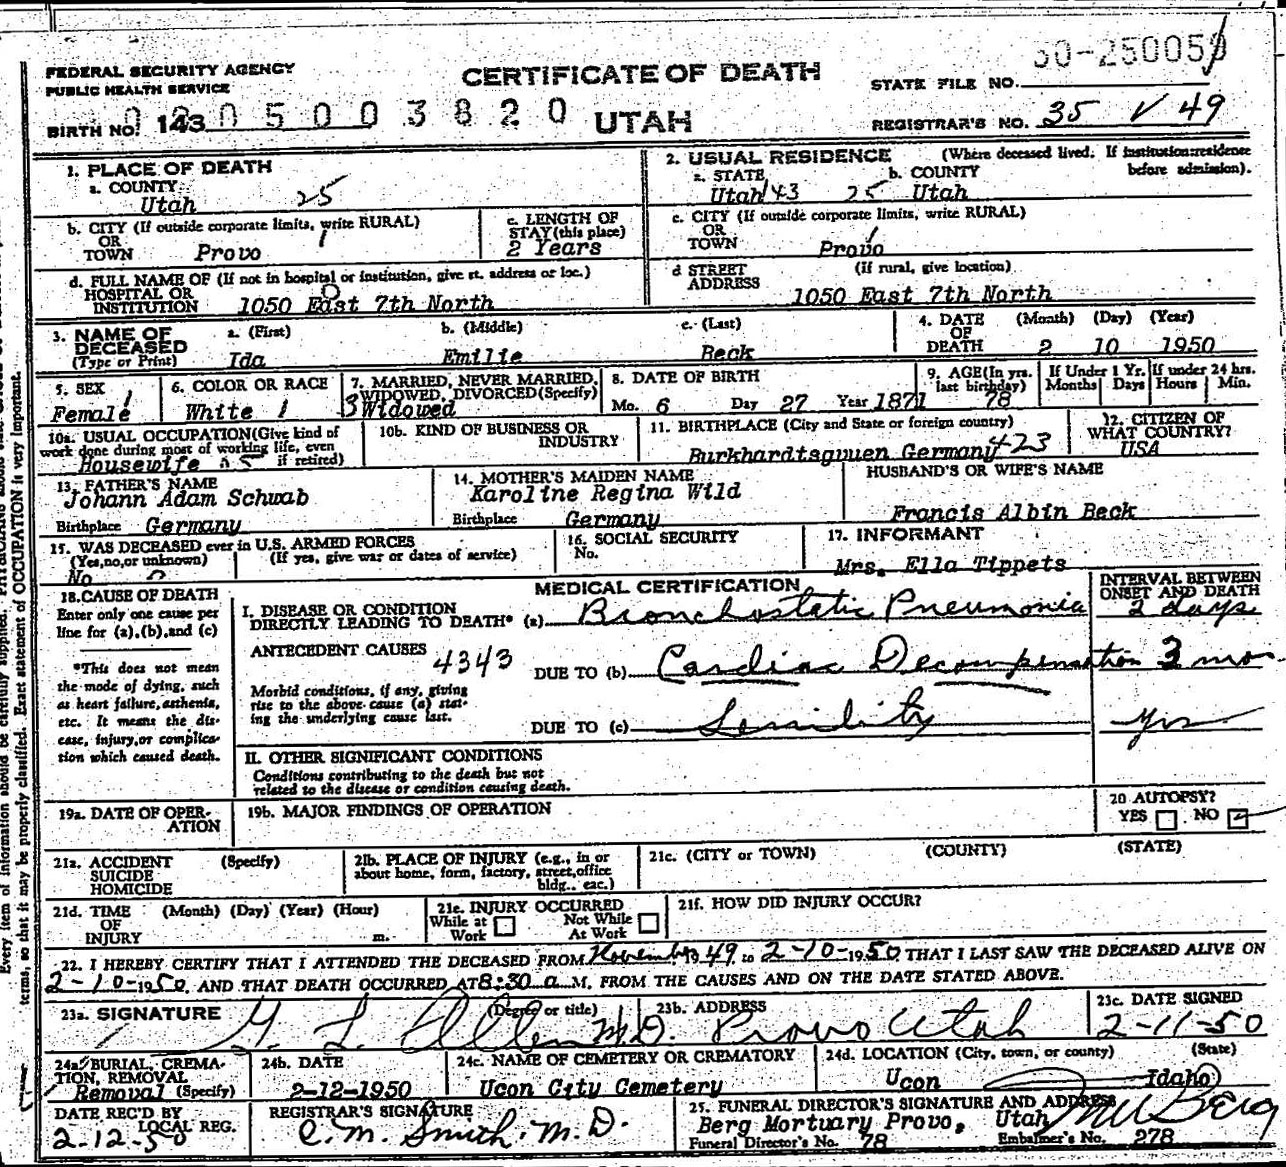 FEDERAL SECURITY AGENCY
PUBLIC HEALTH SERVICE
CERTIFICATE OF DEATH
UTAH
STATE FILE NO. 50-250059
BIRTH NO. 143 0205003820
REGISTRAR'S NO. 35 V 49
1. PLACE OF DEATH
a. COUNTY
Utah 25
2. USUAL RESIDENCE (Where deceased lived. If institution: residence before admission).
a. STATE b. COUNTY
Utah 143 25 Utah
b. CITY (If outside corporate limits, write RURAL)
OR
TOWN Provo
c. LENGTH OF
STAY (this place)
2 Years
c. CITY (If outside corporate limits, write RURAL)
OR
TOWN Provo
d. FULL NAME OF (If not in hospital or institution, give st. address or loc.)
HOSPITAL OR
INSTITUTION 1050 East 7th North
d STREET (If rural, give location)
ADDRESS
1050 East 7th North
3. NAME OF
DECEASED
(Type or Print)
a. (First) b. (Middle) c. (Last)
Ida Emilie Beck
4. DATE (Month) (Day) (Year)
OF
DEATH 2 10 1950
5. SEX
Female 1
6. COLOR OR RACE
White 1
7. MARRIED, NEVER MARRIED,
WIDOWED, DIVORCED (Specify)
3 Widowed
8. DATE OF BIRTH
Mo. 6 Day 27 Year 1871
9. AGE (In yrs.
last birthday)
78
If Under 1 Yr.
Months Days
If under 24 hrs.
Hours Min.
10a. USUAL OCCUPATION (Give kind of
work done during most of working life, even
Housewife if retired)
10b. KIND OF BUSINESS OR
INDUSTRY
11. BIRTHPLACE (City and State or foreign country)
Burkhardtsgvuen Germany 423
12. CITIZEN OF
WHAT COUNTRY?
USA
13. FATHER'S NAME
Johann Adam Schwab
Birthplace Germany
14. MOTHER'S MAIDEN NAME
Karoline Regina Wild
Birthplace Germany
HUSBAND'S OR WIFE'S NAME
Francis Albin Beck
15. WAS DECEASED ever in U.S. ARMED FORCES
(Yes, no, or unknown) (If yes, give war or dates of service)
No 0
16. SOCIAL SECURITY
No.
17. INFORMANT
Mrs. Ella Tippets
18. CAUSE OF DEATH
Enter only one cause per
line for (a), (b), and (c)
*This does not mean
the mode of dying, such
as heart failure, asthenia,
etc. It means the dis-
ease, injury, or complica-
tion which caused death.
MEDICAL CERTIFICATION
INTERVAL BETWEEN
ONSET AND DEATH
I. DISEASE OR CONDITION
DIRECTLY LEADING TO DEATH* (a) Bronchostatic Pneumonia 2 days
ANTECEDENT CAUSES 4343
DUE TO (b) Cardiac Decompensation 3 mos
Morbid conditions, if any, giving
rise to the above cause (a) stat-
ing the underlying cause last.
DUE TO (c) Senility yrs
II. OTHER SIGNIFICANT CONDITIONS
Conditions contributing to the death but not
related to the disease or condition causing death.
19a. DATE OF OPER-
ATION
19b. MAJOR FINDINGS OF OPERATION
20 AUTOPSY?
YES NO
21a. ACCIDENT (Specify)
SUICIDE
HOMICIDE
21b. PLACE OF INJURY (e.g., in or
about home, form, factory, street, office
bldg., eac.)
21c. (CITY or TOWN) (COUNTY) (STATE)
21d. TIME (Month) (Day) (Year) (Hour)
OF
INJURY m.
21e. INJURY OCCURRED
While at Work Not While At Work
21f. HOW DID INJURY OCCUR?
22. I HEREBY CERTIFY THAT I ATTENDED THE DECEASED FROM November 1949 to 2-10-1950 THAT I LAST SAW THE DECEASED ALIVE ON
2-10-1950, AND THAT DEATH OCCURRED AT 8:30 a M. FROM THE CAUSES AND ON THE DATE STATED ABOVE.
23a. SIGNATURE (Degree or title)
G. L. Allen M.D.
23b. ADDRESS
Provo Utah
23c. DATE SIGNED
2-11-50
24a BURIAL, CREMA-
TION, REMOVAL
Removal (Specify)
24b. DATE
2-12-1950
24c. NAME OF CEMETERY OR CREMATORY
Ucon City Cemetery
24d. LOCATION (City, town, or county) (State)
Ucon Idaho
DATE REC'D BY
LOCAL REG.
2-12-50
REGISTRAR'S SIGNATURE
C. M. Smith. M.D.
25. FUNERAL DIRECTOR'S SIGNATURE AND ADDRESS
Berg Mortuary Provo, Utah
Berg
Funeral Director's No. 78 Embalmer's No. 278
Every item of information should be carefully supplied.
terms, so that it may be properly classified. Exact statement of OCCUPATION is very important.